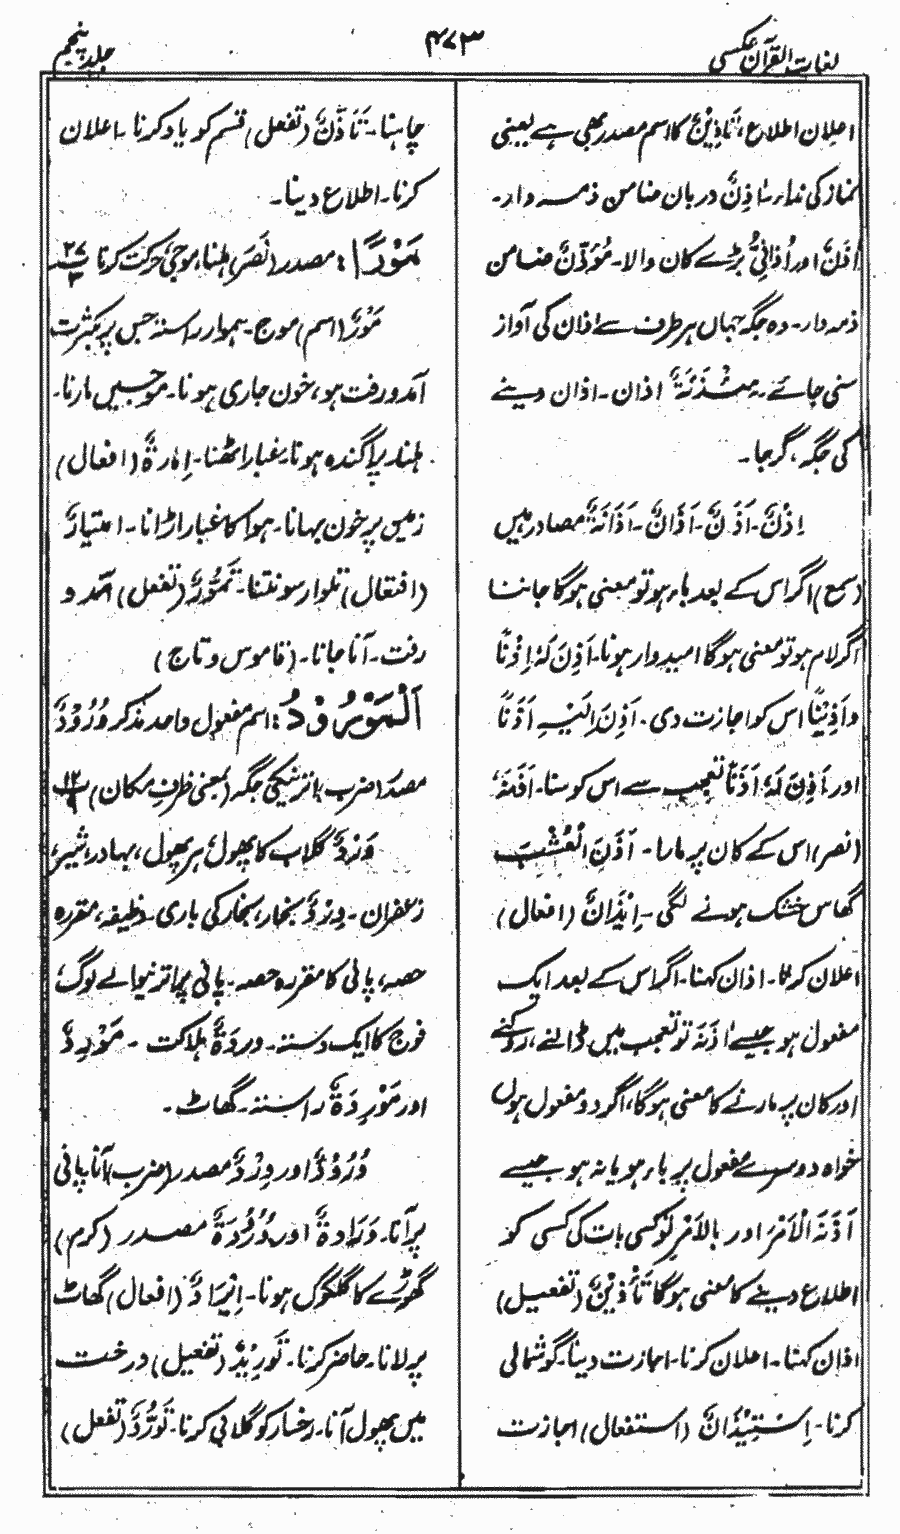 لغات القرآن عکسی
۴۷۳
جلد پنجم
اعلان اطلاع، تَأْذِيْنٌ کا اسم مصدر بھی ہے یعنی
نماز کی نداء۔ اٰذِنٌ دربان ضامن ذمہ دار۔
اُذُنٌ اور اُذَانِیٌّ بڑے کان والا۔ مُؤَذِّنٌ ضامن
ذمہ دار۔ وہ جگہ جہاں ہر طرف سے اذان کی آواز
سنی جائے۔ مِئْذَنَةٌ اذان۔ اذان دینے
کی جگہ، گرجا۔
اِذْنٌ۔ اَذَنٌ۔ اَذَانٌ۔ اَذَانَةٌ مصادر ہیں
(سمع) اگر اس کے بعد باء ہو تو معنی ہوگا جاننا
اگر لام ہو تو معنی ہوگا امیدوار ہونا۔ اَذِنَ لَهٗ اِذْنًا
و اَذِيْنًا اس کو اجازت دی۔ اَذِنَ اِلَيْهِ اَذَنًا
اور اَذِنَ لَهٗ اَذَنًا تعجب سے اس کو سنا۔ اَذَنَهٗ
(نصر) اس کے کان پر مارا۔ اَذَنَ الْعُشْبُ
گھاس خشک ہونے لگی۔ اِيْذَانٌ (افعال)
اعلان کرنا۔ اذان کہنا۔ اگر اس کے بعد ایک
مفعول ہو جیسے اٰذَنَهٗ تو تعجب میں ڈالنے، روکنے
اور کان پر مارنے کا معنی ہوگا، اگر دو مفعول ہوں
خواہ دوسرے مفعول پر باء ہو یا نہ ہو جیسے
اٰذَنَهُ الْاَمْرَ اور بِالْاَمْرِ تو کسی بات کی کسی کو
اطلاع دینے کا معنی ہوگا تَأْذِيْنٌ (تفعیل)
اذان کہنا۔ اعلان کرنا۔ اجازت دینا۔ گوشمالی
کرنا۔ اِسْتِيْذَانٌ (استفعال) اجازت
چاہنا۔ تَأَذُّنٌ (تفعل) قسم کو یاد کرنا۔ اعلان
کرنا۔ اطلاع دینا۔
مَوْرًا: مصدر (نَصَرَ) ہلنا، موجی حرکت کرنا ۲۷/۳
مَوْرٌ (اسم) موج۔ ہموار راستہ جس پر بکثرت
آمدورفت ہو، خون جاری ہونا۔ موجیں مارنا۔
ہلنا۔ پراگندہ ہونا۔ غبار اٹھنا۔ اِمَارَةٌ (افعال)
زمین پر خون بہانا۔ ہوا کا غبار اڑانا۔ امتیارٌ
(افتعال) تلوار سونتنا۔ تَمَوُّرٌ (تفعل) آمد و
رفت۔ آنا جانا۔ (قاموس و تاج)
اَلْمَوْرُوْدُ: اسم مفعول واحد مذکر وُرُوْدٌ
مصدر (ضرب) اترنیکی جگہ (بمعنی ظرف مکان) ۱۲/۹
وَرْدٌ گلاب کا پھول، ہر پھول، بہادر، شیر،
زعفران۔ وِرْدٌ بخار، بخار کی باری۔ وظیفہ، مقررہ
حصہ، پانی کا مقررہ حصہ۔ پانی پر اترنیوالے لوگ،
فوج کا ایک دستہ۔ وردَةٌ ہلاکت ۔ مَوْرِدٌ
اور مَوْرِدَةٌ راستہ۔ گھاٹ۔
وُرُوْدٌ اور وِرْدٌ مصدر (ضرب) آنا پانی
پر آنا۔ وَرَادَةٌ اور وُرُوْدَةٌ مصدر (کرم)
گھوڑے کا گلگوں ہونا۔ اِيْرَادٌ (افعال) گھاٹ
پر لانا۔ حاضر کرنا۔ تَوْرِيْدٌ (تفعیل) درخت
میں پھول آنا۔ رخسار کو گلابی کرنا۔ تَوَرُّدٌ (تفعل)